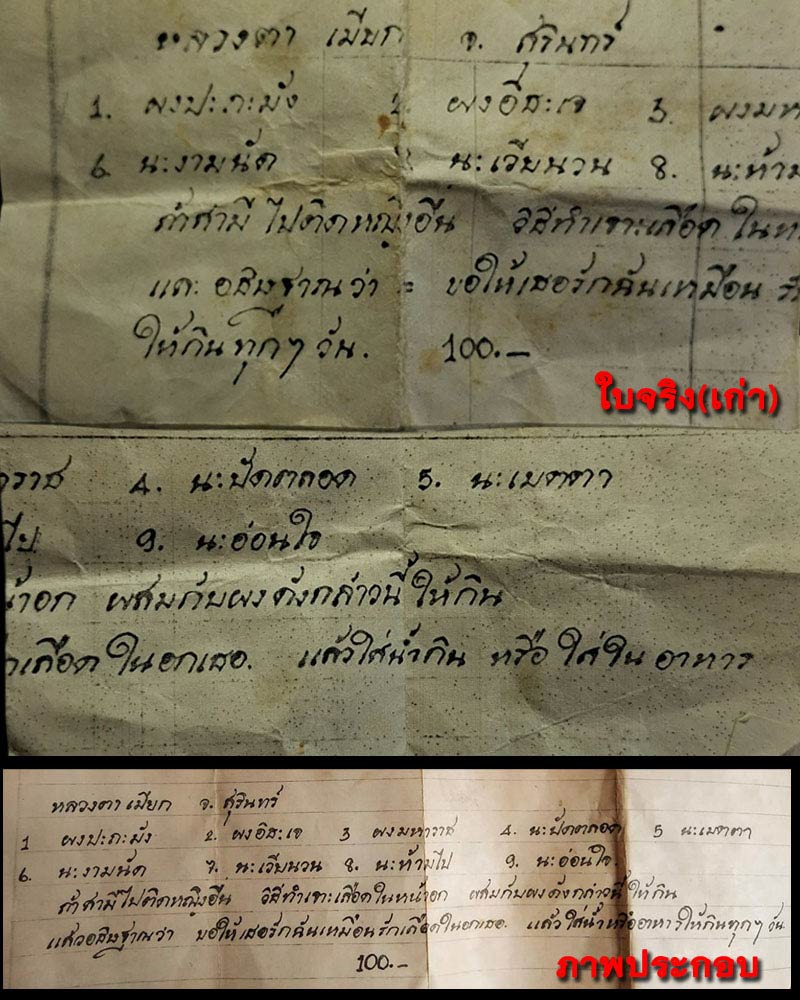 หลวงตา เมียก จ. สุรินทร์
1. ผงปะ.ถะมัง 2 ผงอิสะเจ 3. ผงมห
6. นะงามนัด นะเวียนวน 8. นะห้าม
ถ้าสามี ไปติดหญิงอื่น วิธีทำเจาะเลือด ในห
และ อธิษฐานว่า = ขอให้เธอรักฉันเหมือน รั
ให้กินทุกๆ วัน. 100.-
ใบจริง(เก่า)
าราช 4. นะปัดตลอด 5. นะเมตตา
ไป 9. นะอ่อนใจ
น้าอก ผสมกับผงดังกล่าวนี้ ให้กิน
กเลือด ในอกเธอ. แล้วใส่น้ำกิน หรือ ใส่ใน อาหาร
หลวงตา เมียก จ. สุรินทร์
1 ผงปะ.ถะมัง 2. ผงอิสะเจ 3 ผงมหาราช 4. นะปัดตลอด 5 นะเมตตา
6. นะงามนัด 7. นะเวียนวน 8. นะห้ามไป 9. นะอ่อนใจ.
ถ้าสามีไปติดหญิงอื่น วิธีทำเจาะเลือดในหน้าอก ผสมกับผงดังกล่าวนี้ ให้กิน
แล้วอธิษฐานว่า ขอให้เธอรักฉันเหมือนรักเลือดในอกเธอ. แล้วใส่น้ำหรืออาหารให้กินทุกๆ วัน
100.-
ภาพประกอบ